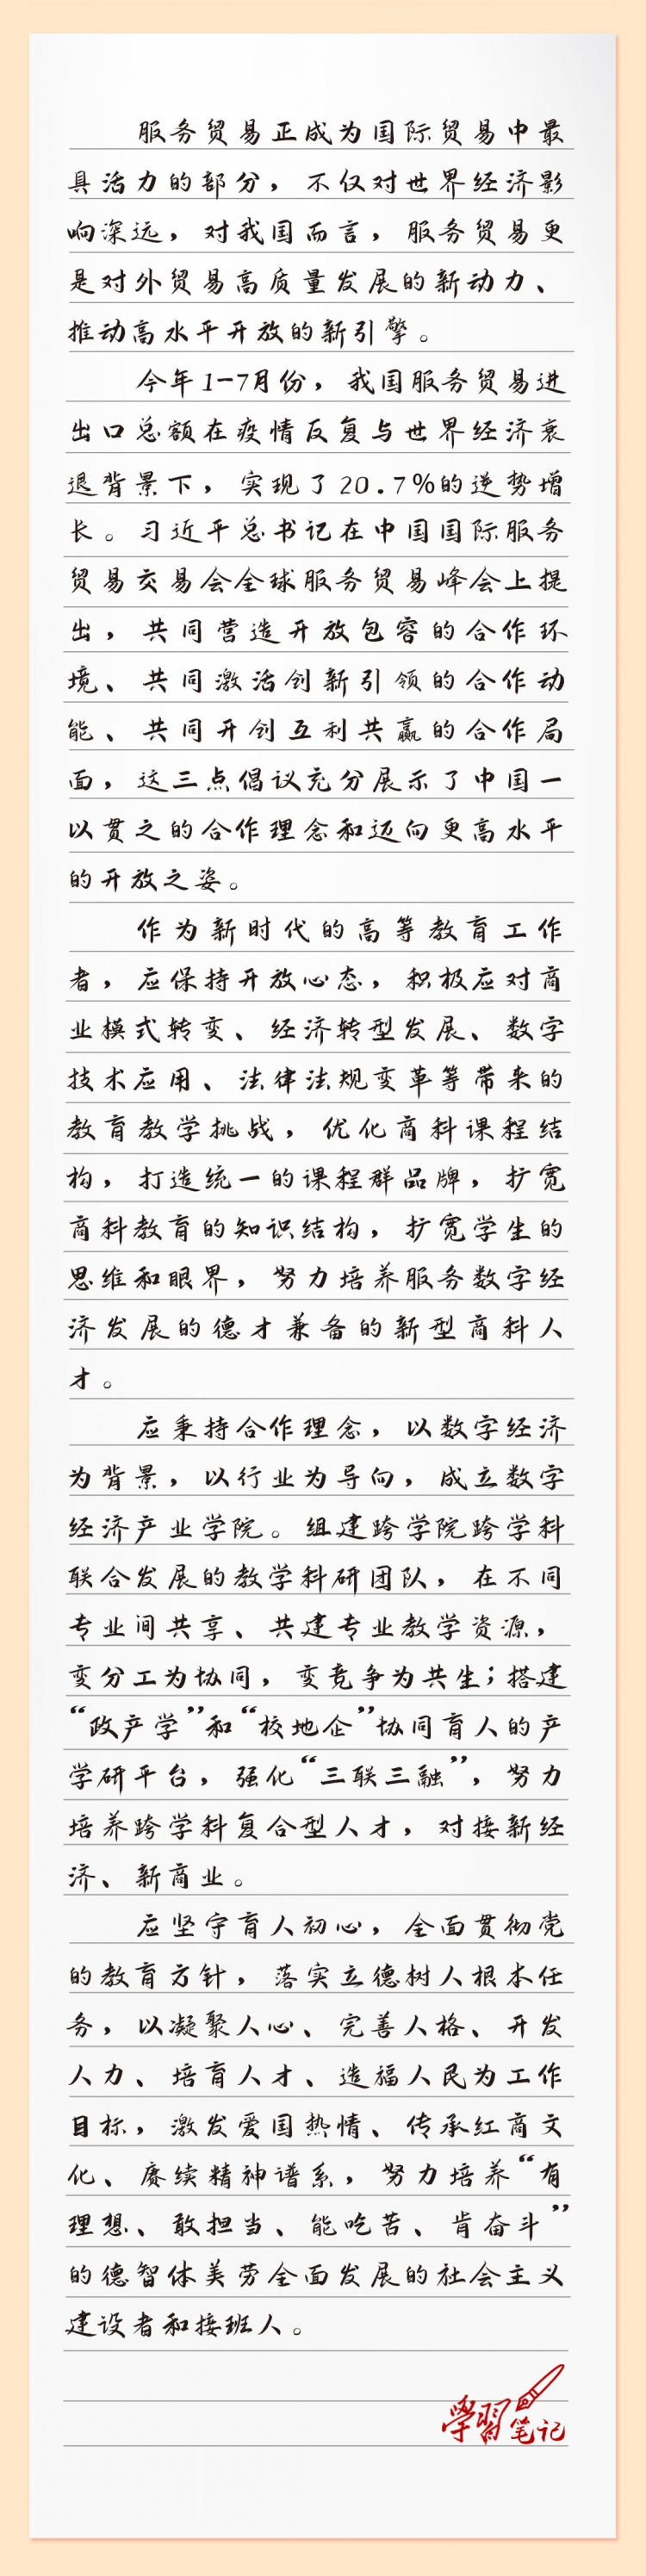 服务贸易正成为国际贸易中最
具活力的部分，不仅对世界经济影
响深远，对我国而言，服务贸易更
是对外贸易高质量发展的新动力、
推动高水平开放的新引擎。
今年1-7月份，我国服务贸易进
出口总额在疫情反复与世界经济衰
退背景下，实现了20.7%的逆势增
长。习近平总书记在中国国际服务
贸易交易会全球服务贸易峰会上提
出，共同营造开放包容的合作环
境、共同激活创新引领的合作动
能、共同开创互利共赢的合作局
面，这三点倡议充分展示了中国一
以贯之的合作理念和迈向更高水平
的开放之姿。
作为新时代的高等教育工作
者，应保持开放心态，积极应对商
业模式转变、经济转型发展、数字
技术应用、法律法规变革等带来的
教育教学挑战，优化商科课程结
构，打造统一的课程群品牌，扩宽
商科教育的知识结构，扩宽学生的
思维和眼界，努力培养服务数字经
济发展的德才兼备的新型商科人
才。
应秉持合作理念，以数字经济
为背景，以行业为导向，成立数字
经济产业学院。组建跨学院跨学科
联合发展的教学科研团队，在不同
专业间共享、共建专业教学资源，
变分工为协同，变竞争为共生；搭建
“政产学”和“校地企”协同育人的产
学研平台，强化“三联三融”，努力
培养跨学科复合型人才，对接新经
济、新商业。
应坚守育人初心，全面贯彻党
的教育方针，落实立德树人根本任
务，以凝聚人心、完善人格、开发
人力、培育人才、造福人民为工作
目标，激发爱国热情、传承红商文
化、赓续精神谱系，努力培养“有
理想、敢担当、能吃苦、肯奋斗”
的德智体美劳全面发展的社会主义
建设者和接班人。
學習笔记